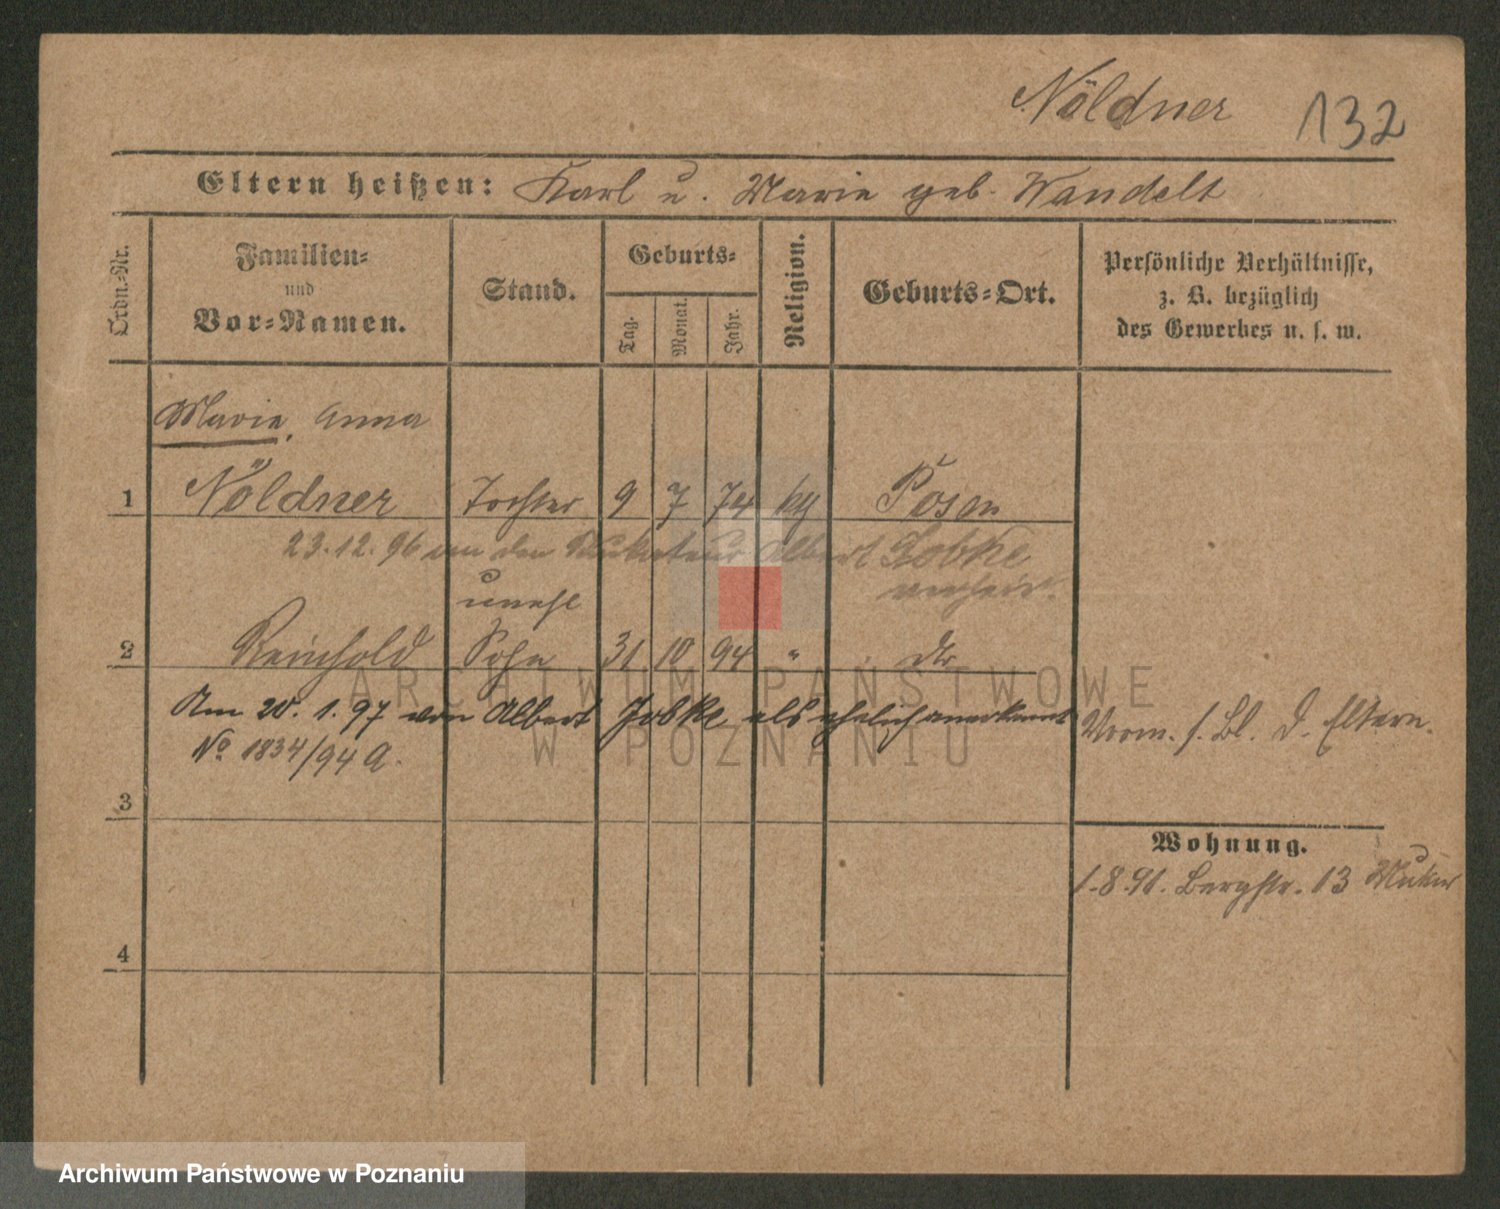 Nöldner 132
Eltern heißen: Karl u. Marie geb. Wandelt
Ordn.-Nr.
Familien-
und
Vor-Namen.
Stand.
Geburts-
Tag.
Monat.
Jahr.
Religion.
Geburts-Ort.
Persönliche Verhältnisse,
z. B. bezüglich
des Gewerbes u. s. w.
Marie, Anna
1 Nöldner Tochter 9 7 74 kth Posen
23.12.96 an den Albert Jobke
verheir.
unehl
2 Reinhold Sohn 31 10 94 " dto
Am 20.1.97 von Albert Jobke als ehelich anerkannt
No 1834/94 A.
Vorm. s. Bl. d. Eltern.
3
Wohnung.
1.8.91. Bergstr. 13
4
ARCHIWUM PAŃSTWOWE
W POZNANIU
Archiwum Państwowe w Poznaniu